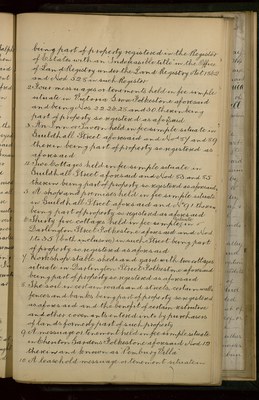 being part of property registered in the Register
of Estates with an Indefeasible title in the Office
of Land Registry under the Land Registry Act 1862
and Nos. 526 in such Register
2. Four messuages or tenements held in fee simple
situate in Victoria Grove Folkestone aforesaid
and being Nos. 28 and 30 therein being
part of property so registered as aforesaid
3. An Inn or Tavern held in fee simple situate in
Guildhall Street aforesaid and Nos 57 and 59
therein being part of property so registered as
aforesaid
4. Two Cottages held in fee simple situate in
Guildhall Street aforesaid and Nos 63 and 65
therein being part of property so registered as aforesaid
5. A shop and premises held in fee simple situate
in Guildhall Street aforesaid and No 91 therein
being part of property so registered as aforesaid
6. Thirty five cottages held in fee simple in
Darlington Street Folkestone aforesaid and Nos
1 to 35 (both inclusive) in such Street being part
of property so registered as aforesaid
7. Workshop stable sheds and yard with two cottages
situate in Darlington Street Folkestone aforesaid
being part of property so registered as aforesaid
8. The soil in certain roads and streets certain walls
fences and banks being part of property so registered
as aforesaid and the benefit of certain restrictive
and other covenants entered into by purchasers
of lands formerly part of such property
9. A messuage or tenement held in fee simple situate
in Cheriton Gardens Folkestone aforesaid No 18
therein and known as Pembury Villa
10. A leasehold messuage or tenement situate in